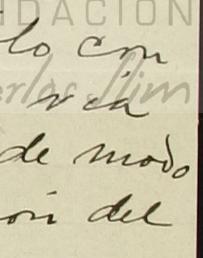 FUNDACIÓN
lo con
Carlos Slim
via
de modo
ón del